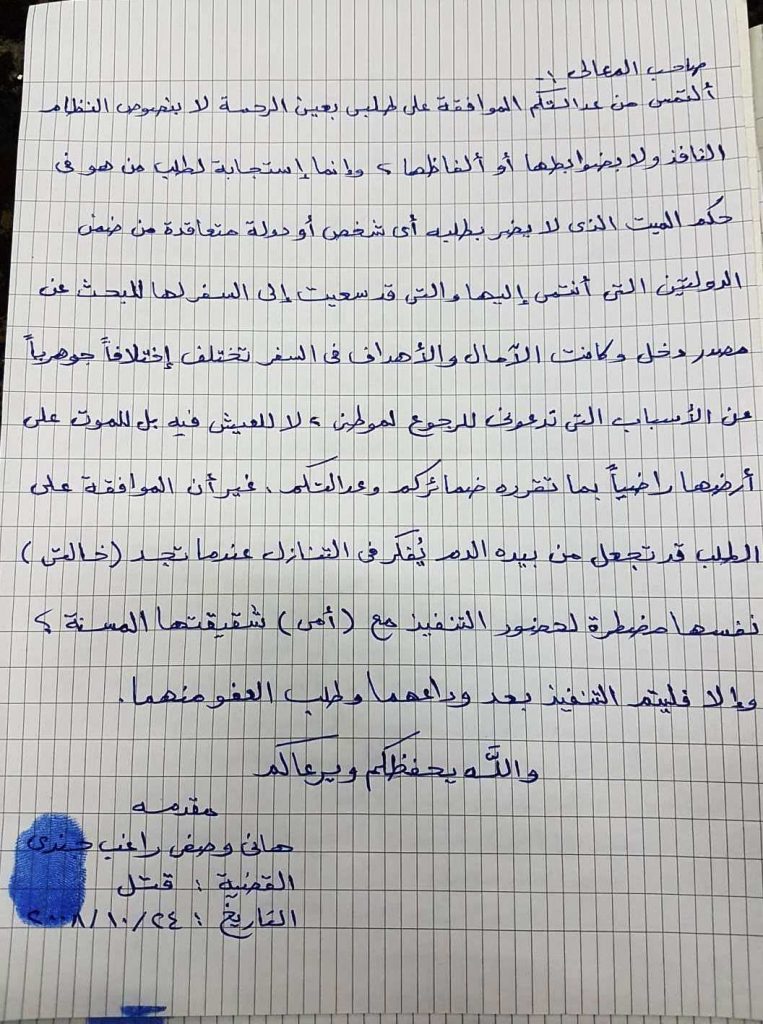 صاحب المعالى :-
ألتمس من عدالتكم الموافقة على طلبى بعين الرحمة لا بنصوص النظام
النافذ ولا بضوابطها أو ألفاظها ، وإنما إستجابة لطلب من هو فى
حكم الميت الذى لا يضر بطلبه أى شخص أو دولة متعاقدة من ضمن
الدولتين التى أنتمى إليها والتى قد سعيت إلى السفر لها للبحث عن
مصدر دخل وكانت الآمال والأهداف فى السفر تختلف إختلافاً جوهرياً
عن الأسباب التى تدعونى للرجوع لموطنى ، لا للعيش فيه بل للموت على
أرضها راضياً بما تقرره ضمائركم وعدالتكم ، غير أن الموافقة على
الطلب قد تجعل من بيده الدم يُفكر فى التنازل عندما تجد (خالتى)
نفسها مضطرة لحضور التنفيذ مع (أمى) شقيقتها المسنة ؟
وإلا فليتم التنفيذ بعد وداعهما وطلب العفو منهما .
والله يحفظكم ويرعاكم
مقدمه
هانى وصفى راغب جندى
القضية : قتل
التاريخ : ٢٠٠٨/١٠/٢٤